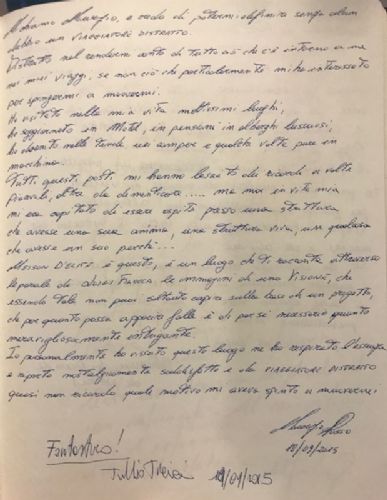 Mi chiamo Maurizio, e credo di potermi definire senza alcun
dubbio un VIAGGIATORE DISTRATTO.
Distratto nel rendermi conto di tutto ciò che c'è intorno a me
nei miei viaggi, se non ciò che particolarmente mi ha interessato
per spingermi a muovermi.
Ho visitato nella mia vita moltissimi luoghi,
ho soggiornato in Motel, in pensioni in alberghi lussuosi,
ho dormito nelle tende nei camper e qualche volta pure in
macchina.
Tutti questi posti mi hanno lasciato dei ricordi a volte
piacevoli, altri da dimenticare..... ma mai in vita mia
mi era capitato di essere ospite presso una struttura
che avesse una sua anima, una struttura viva, un qualcosa
che avesse un suo perché...
è questo, è un luogo che ti racconta attraverso
le parole di le immagini di una VISIONE, che
essendo tale non puoi capire sulla base di un progetto,
che per quanto possa apparire folle è di per sé necessario quanto
meravigliosamente intrigante.
Io personalmente ho vissuto questo luogo ne ho respirato l'essenza
e riparto nostalgicamente soddisfatto e da VIAGGIATORE DISTRATTO
quasi non ricordo quale motivo mi aveva spinto a muovermi.
Fantastico!
19/04/2015